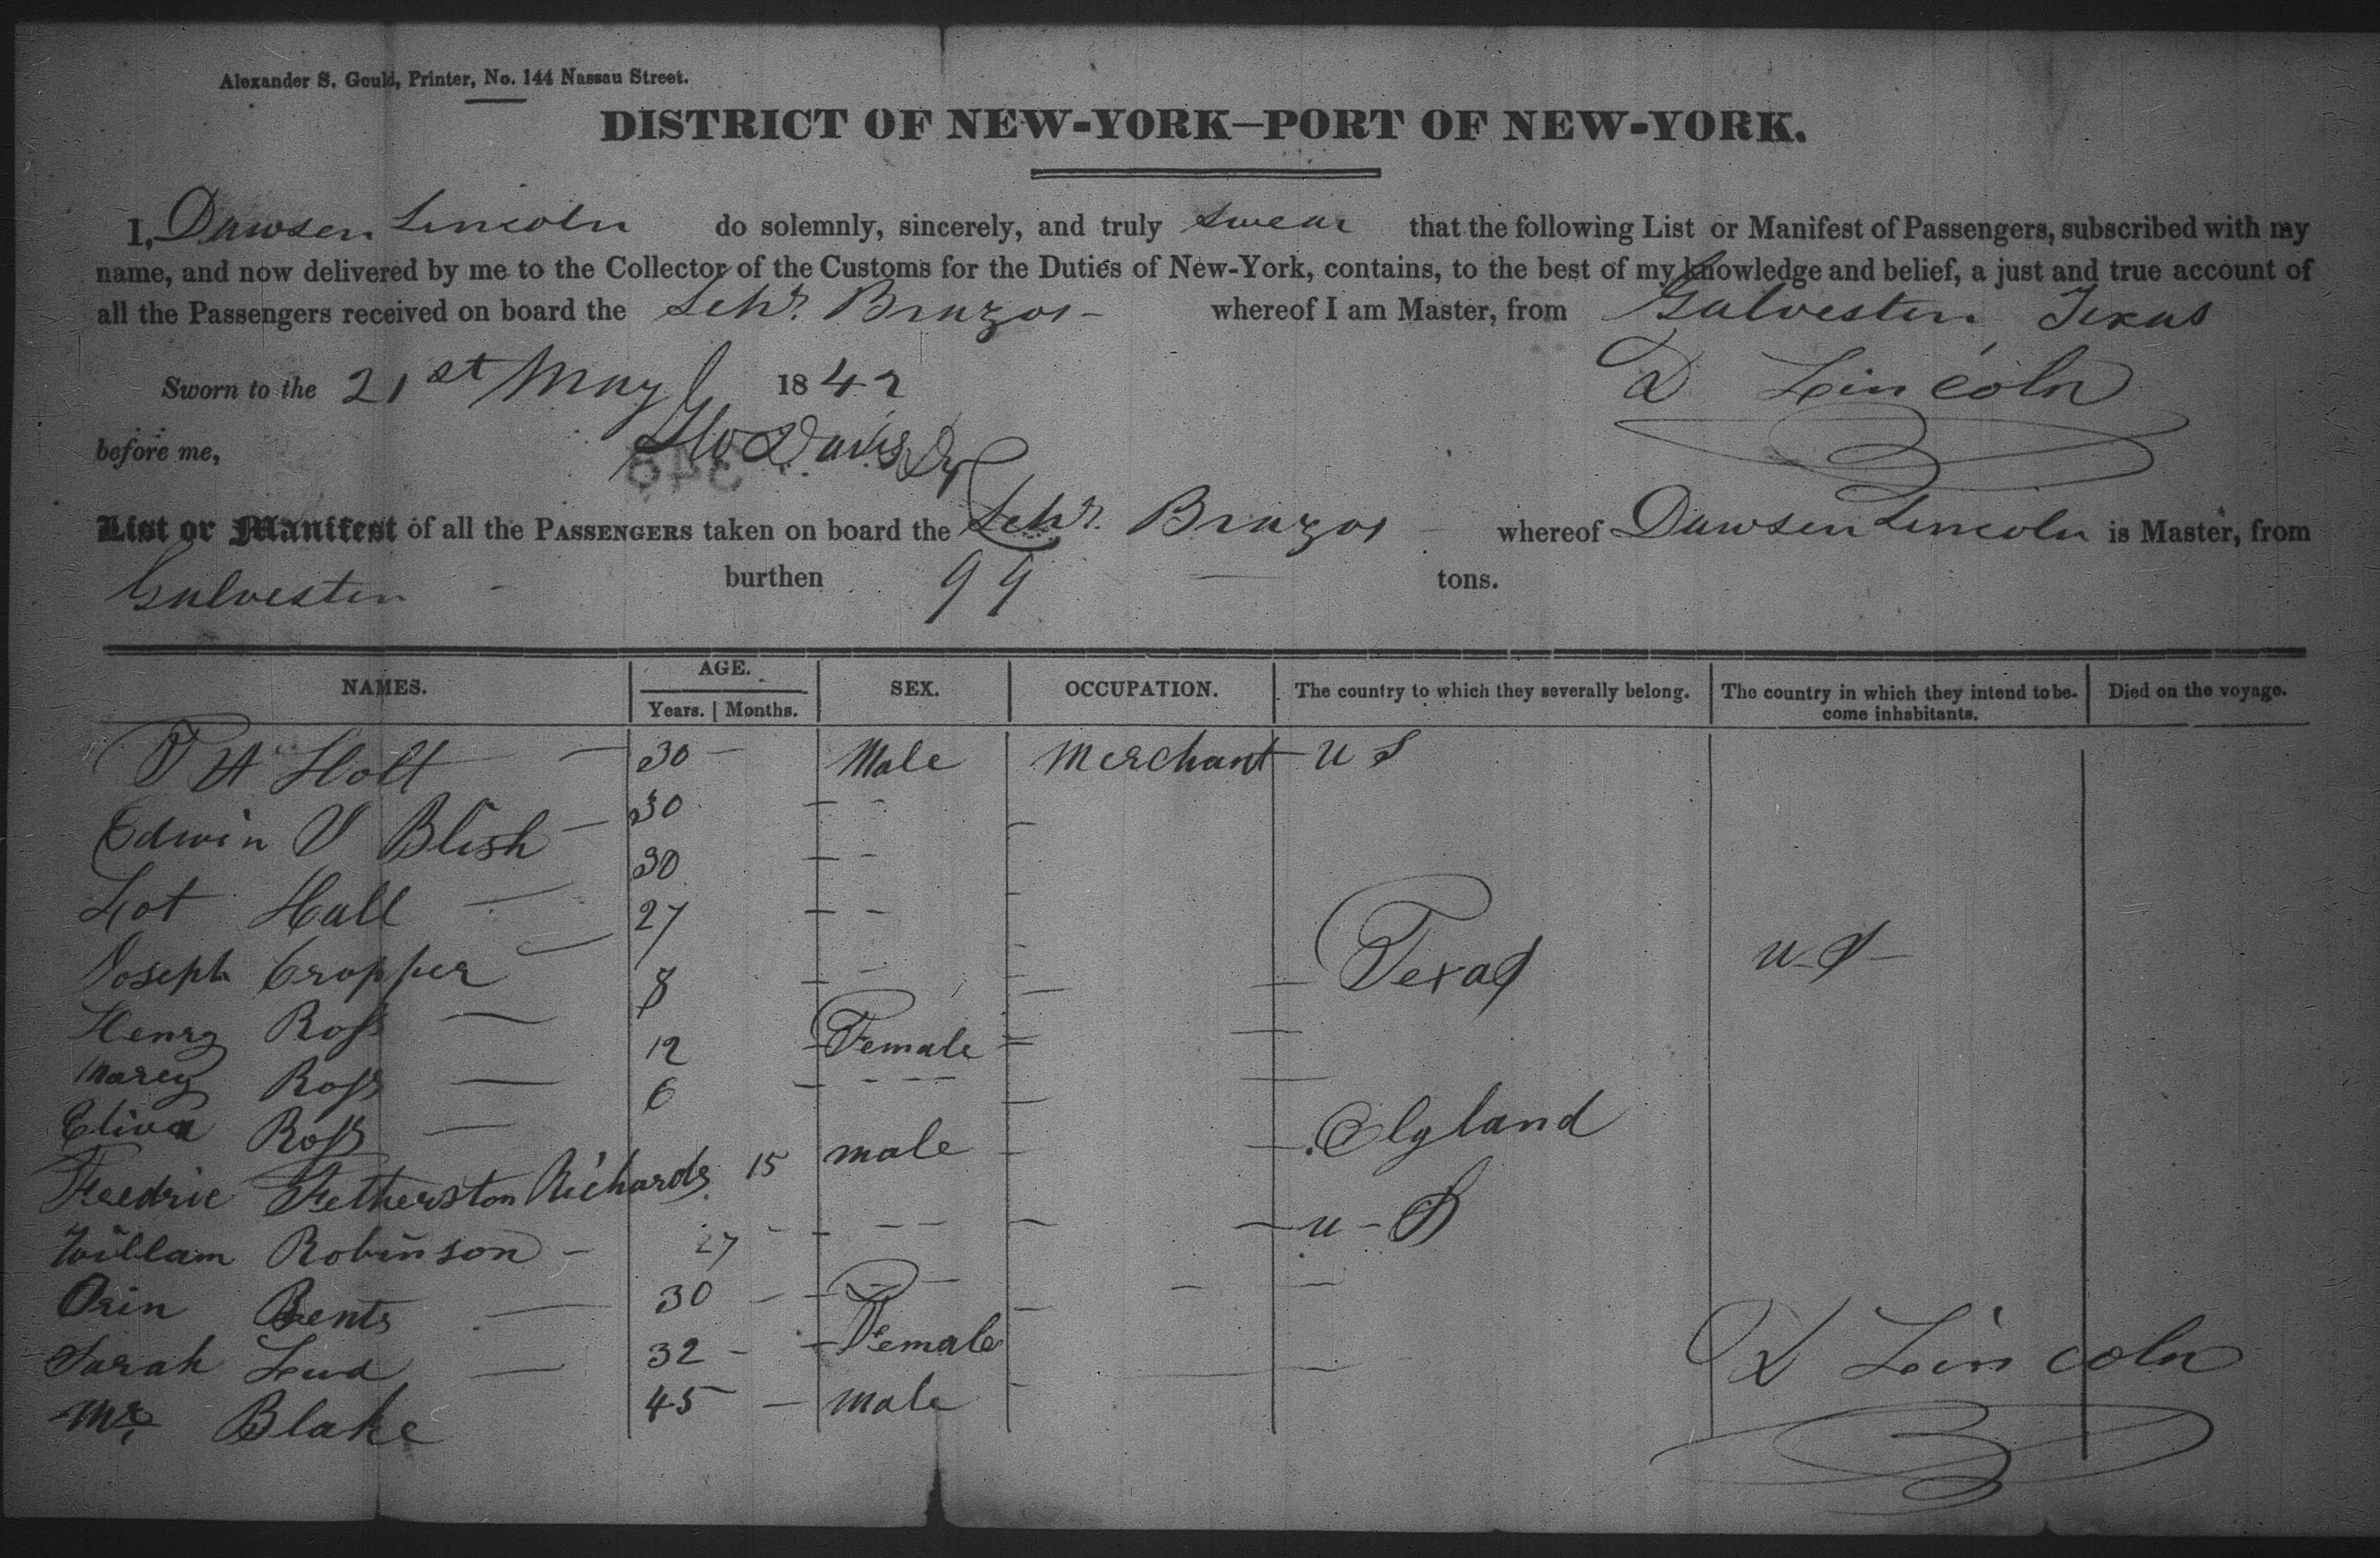 Alexander S. Gould, Printer, No. 144 Nassau Street.
DISTRICT OF NEW-YORK—PORT OF NEW-YORK.
I, Dawsen Lincoln do solemnly, sincerely, and truly swear that the following List or Manifest of Passengers, subscribed with my
name, and now delivered by me to the Collector of the Customs for the Duties of New-York, contains, to the best of my knowledge and belief, a just and true account of
all the Passengers received on board the Schr. Brazos whereof I am Master, from Galveston, Texas
Sworn to the 21st May 1842 D Lincoln
before me, Davis Dy
List or Manifest of all the PASSENGERS taken on board the Schr. Brazos whereof Dawsen Lincoln is Master, from
Galveston burthen 99 tons.
NAMES. AGE. Years. Months. SEX. OCCUPATION. The country to which they severally belong. The country in which they intend to become inhabitants. Died on the voyage.
Holt 30 Male Merchant U S
Edwin Blish 30
Lot Hall 30
Joseph Cropper 27 Texas U-S
Henry Ross 8
Marey Ross 12 Female
Ross 6
Freedric Fetherston Richards 15 male
Willam Robinson 27 U-S
Orin Bents 30
Sarah 32 Female D Lincoln
Mr. Blake 45 Male